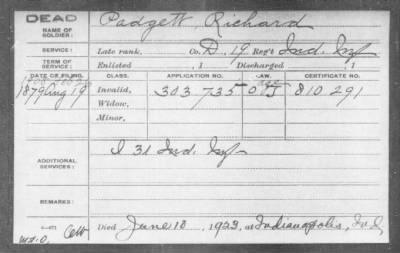 DEAD
NAME OF SOLDIER:
Padgett, Richard
SERVICE:
Late rank, Co. D, 19 Reg't Ind. Inf
TERM OF SERVICE:
Enlisted , 1 Discharged , 1
DATE OF FILING. CLASS. APPLICATION NO. LAW. CERTIFICATE NO.
1879 Aug 19 Invalid, 303 735 810 291
Widow,
Minor,
ADDITIONAL SERVICES:
I 31 Ind. Inf
REMARKS:
Died June 18, 1923, at Indianapolis, Ind.